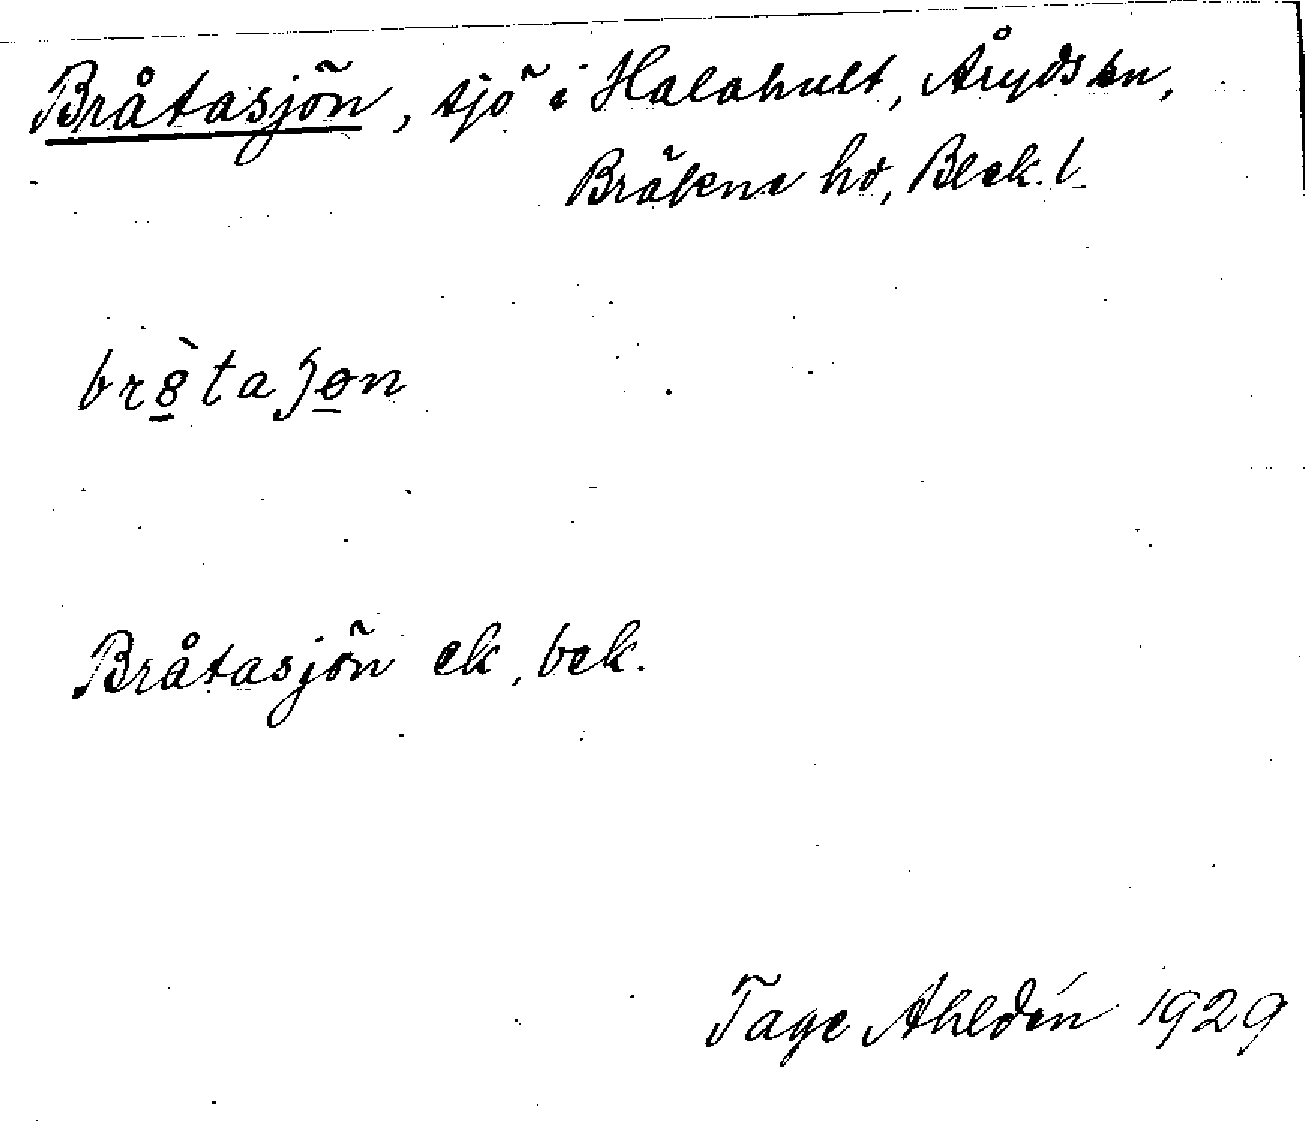 Bråtasjön, sjö i Halahult, Åryds sn,
Bräkne hd, Blek. l.
br8̠̀taʃə̠n
Bråtasjön ek, bek.
Tage Ahldén 1929